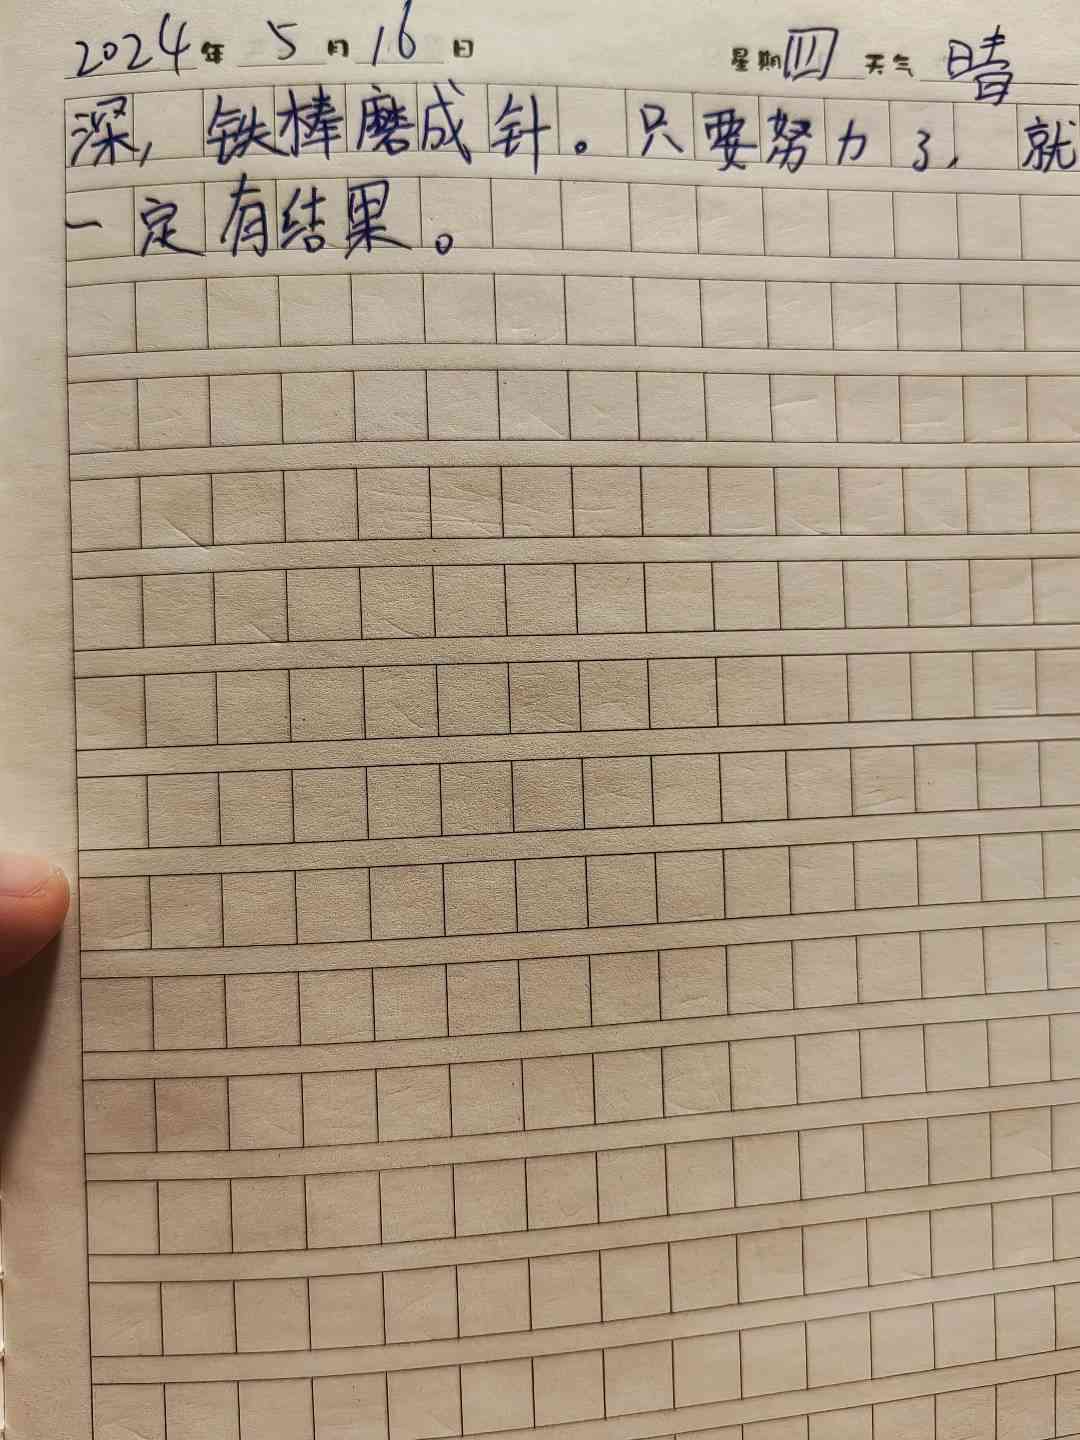 2024年 5月16日 星期四 天气 晴
深，铁棒磨成针。只要努力了，就
一定有结果。